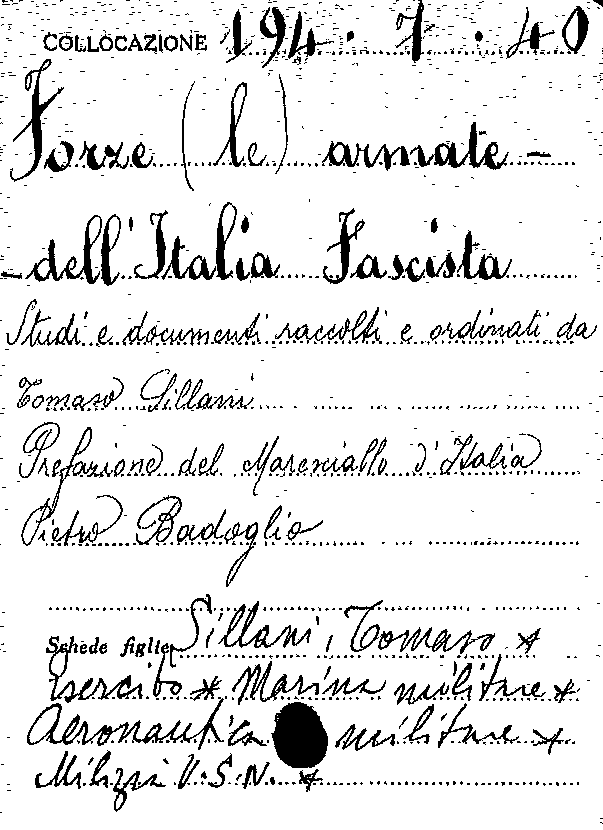 COLLOCAZIONE 194. 7. 40
Forze (le) armate -
- dell'Italia Fascista
Studi e documenti raccolti e ordinati da
Tomaso Sillani
Prefazione del Maresciallo d'Italia
Pietro Badoglio
Schede figlie Sillani, Tomaso *
Esercito * Marina militare *
Aeronautica militare *
Milizia V.S.N. *